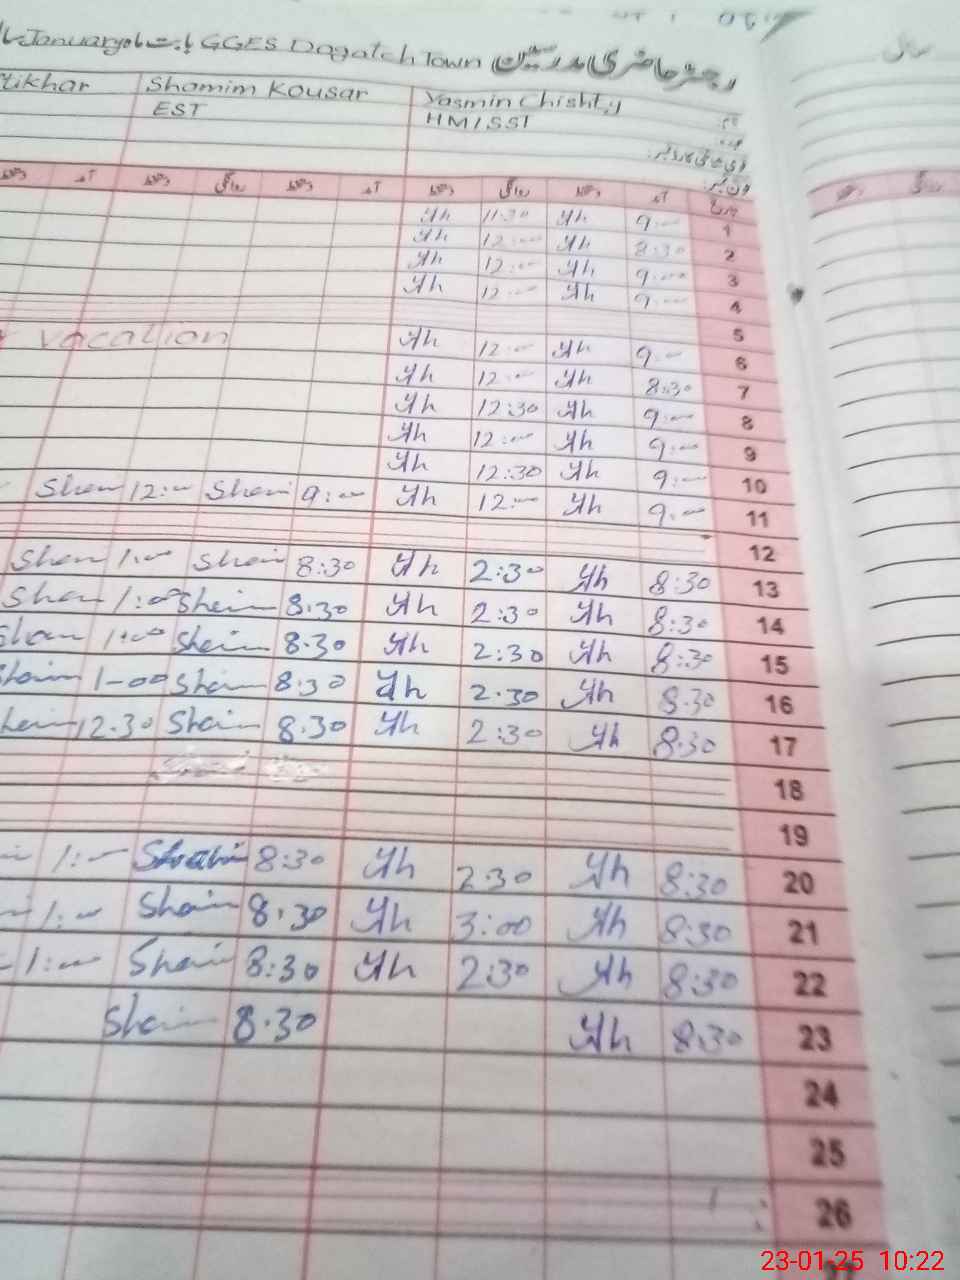 رجسٹر حاضری مدرسین GGES Dogatch Town بابت ماہ January
tikhar Shamim Kousar Yasmin Chishty نام
EST HM/SST عہدہ
فون نمبر
دستخط آمد دستخط روانگی دستخط آمد دستخط روانگی دستخط آمد تاریخ
yh 11:30 yh 9:00 1
yh 12:00 yh 8:30 2
yh 12:00 yh 9:00 3
yh 12:00 yh 9:00 4
5
vacation yh 12:00 yh 9:00 6
yh 12:00 yh 8:30 7
yh 12:30 yh 9:00 8
yh 12:00 yh 9:00 9
yh 12:30 yh 9:00 10
Sham 12:00 Sham 9:00 yh 12:00 yh 9:00 11
12
Sham 1:00 Sham 8:30 yh 2:30 yh 8:30 13
Sham 1:00 Sham 8.30 yh 2:30 yh 8:30 14
Sham 1:00 Sham 8.30 yh 2:30 yh 8:30 15
Sham 1-00 Sham 8.30 yh 2.30 yh 8.30 16
12.30 Sham 8.30 yh 2:30 yh 8.30 17
18
19
1:00 Sham 8:30 yh 2.30 yh 8:30 20
1:00 Sham 8.30 yh 3:00 yh 8:30 21
1:00 Sham 8:30 yh 2:30 yh 8:30 22
Sham 8.30 yh 8.30 23
24
25
26
23-01-25 10:22